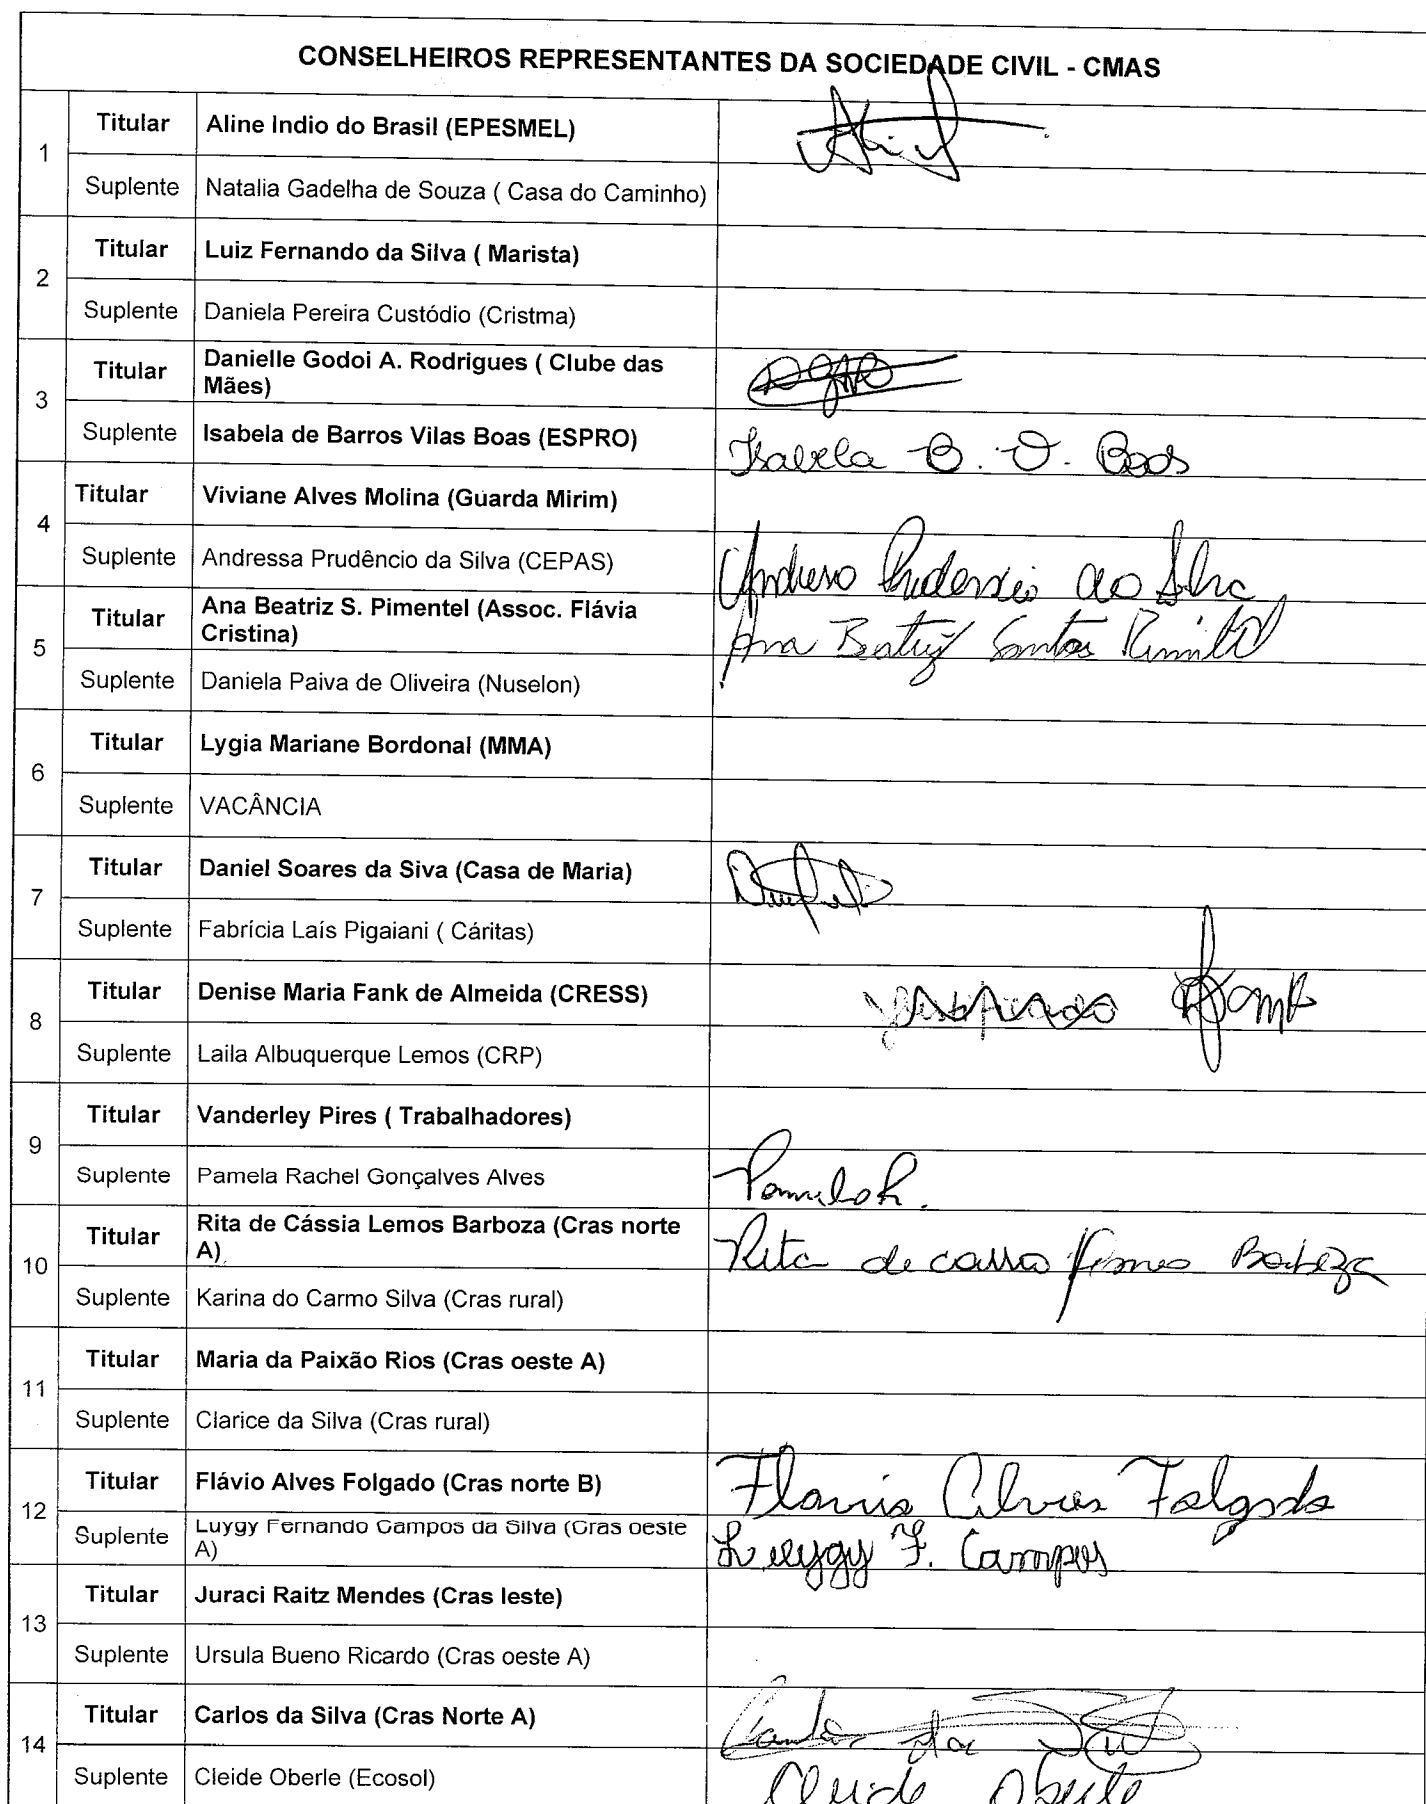 CONSELHEIROS REPRESENTANTES DA SOCIEDADE CIVIL - CMAS
1
Titular Aline Indio do Brasil (EPESMEL)
Suplente Natalia Gadelha de Souza ( Casa do Caminho)
2
Titular Luiz Fernando da Silva ( Marista)
Suplente Daniela Pereira Custódio (Cristma)
3
Titular Danielle Godoi A. Rodrigues ( Clube das
Mães)
Suplente Isabela de Barros Vilas Boas (ESPRO) Isabela B. V. Boas
4
Titular Viviane Alves Molina (Guarda Mirim)
Suplente Andressa Prudêncio da Silva (CEPAS) Andressa Prudencio da Silva
5
Titular Ana Beatriz S. Pimentel (Assoc. Flávia
Cristina) Ana Beatriz Santos Pimentel
Suplente Daniela Paiva de Oliveira (Nuselon)
6
Titular Lygia Mariane Bordonal (MMA)
Suplente VACÂNCIA
7
Titular Daniel Soares da Siva (Casa de Maria)
Suplente Fabrícia Laís Pigaiani ( Cáritas)
8
Titular Denise Maria Fank de Almeida (CRESS) Justificado
Suplente Laila Albuquerque Lemos (CRP)
9
Titular Vanderley Pires ( Trabalhadores)
Suplente Pamela Rachel Gonçalves Alves Pamela R.
10
Titular Rita de Cássia Lemos Barboza (Cras norte
A) Rita de Cassia Lemes Barboza
Suplente Karina do Carmo Silva (Cras rural)
11
Titular Maria da Paixão Rios (Cras oeste A)
Suplente Clarice da Silva (Cras rural)
12
Titular Flávio Alves Folgado (Cras norte B) Flavio Alves Folgado
Suplente Luygy Fernando Campos da Silva (Cras oeste
A) Luygy F. Campos
13
Titular Juraci Raitz Mendes (Cras leste)
Suplente Ursula Bueno Ricardo (Cras oeste A)
14
Titular Carlos da Silva (Cras Norte A) Carlos da Silva
Suplente Cleide Oberle (Ecosol) Cleide Oberle